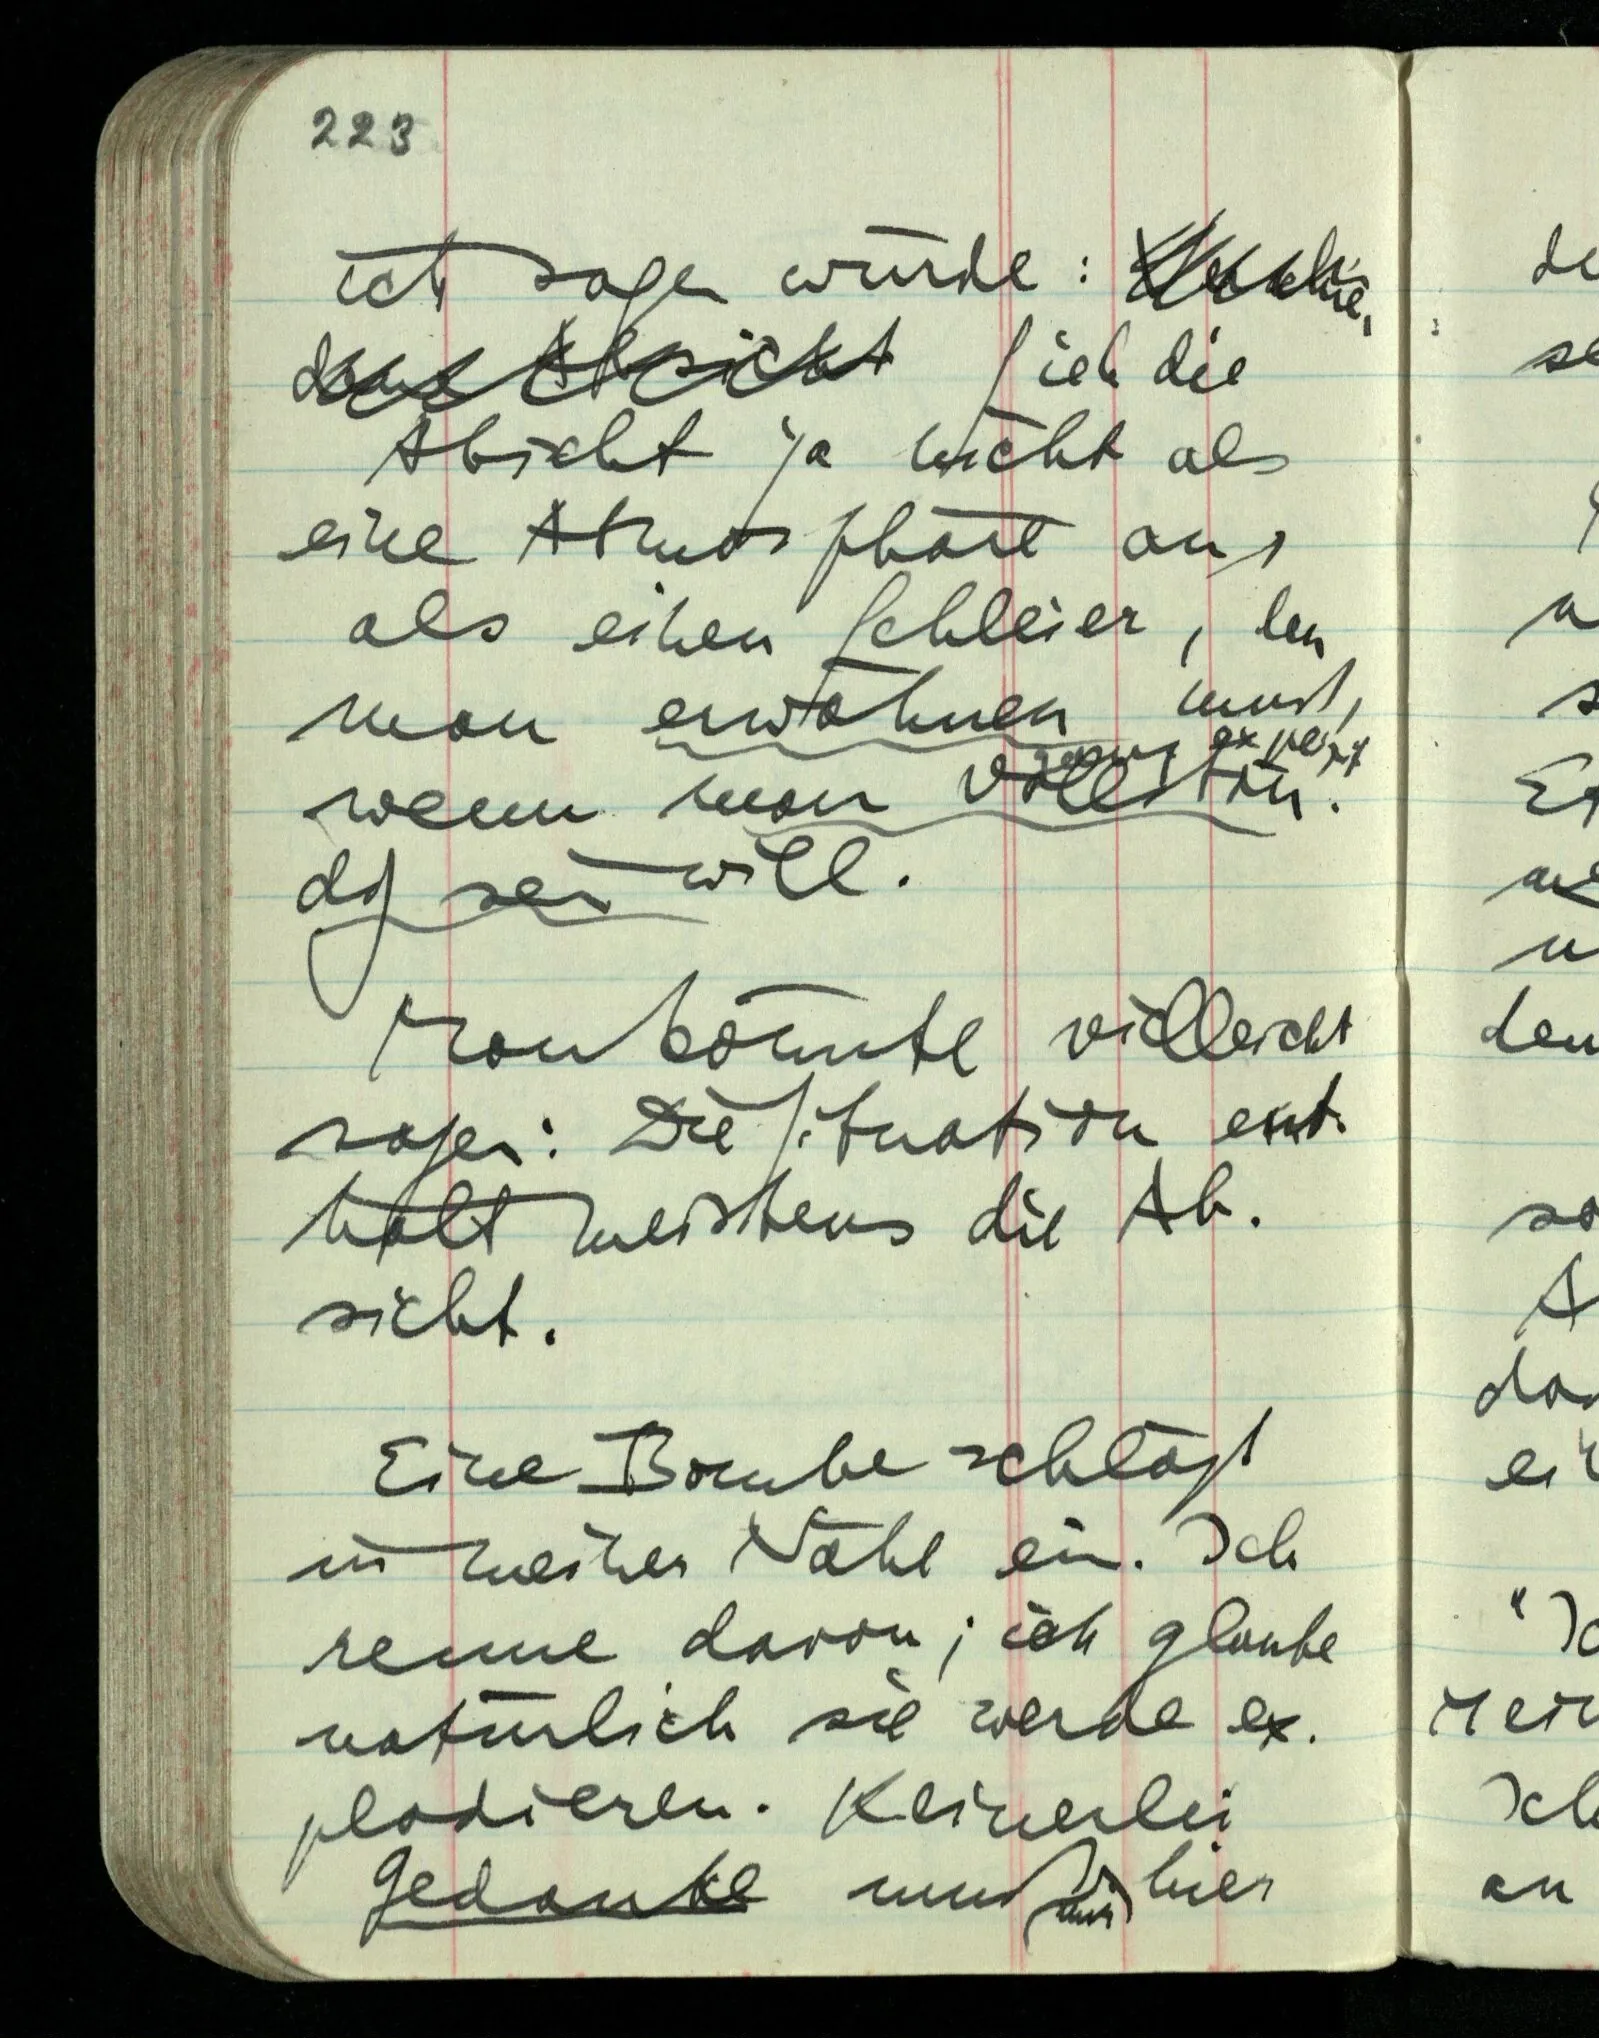 223
ich sagen würde:
Absicht Sieh die
Absicht ja nicht als
eine Atmosphäre an,
als einen Schleier, den
man erwähnen muß,
ganz exakt
wenn man vollstän-
dig sein will.
Man könnte vielleicht
sagen: Die Situation ent-
hält meistens die Ab-
sicht.
Eine Bombe schlägt
in meiner Nähe ein. Ich
renne davon; ich glaube
natürlich sie werde ex-
plodieren. Keinerlei
Gedanke muß mir hier
de
se
a
s
u
den
so
A
da
ei
"Ic
Mein
Ich
an